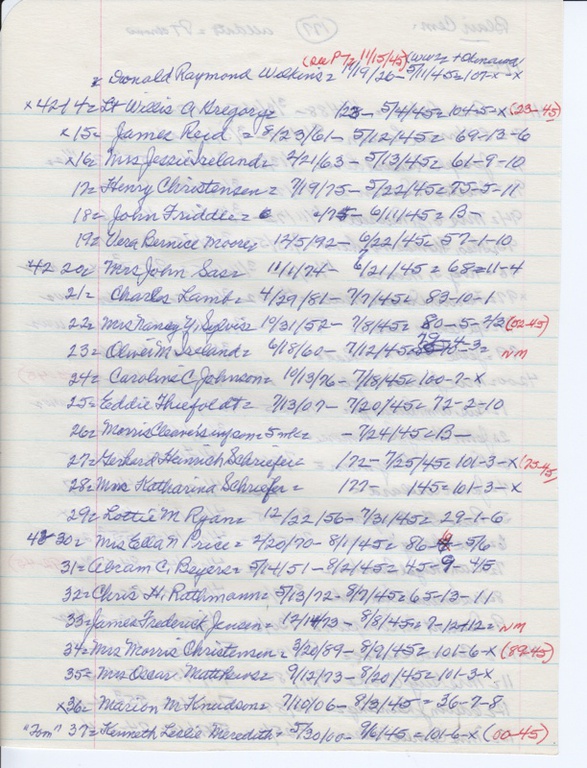 (see P 72 11/15/45) (WW2 + Okinawa)
Donald Raymond Wilkins = 11/19/26 - 5/11/45 = 107-x-x
x 42 14 = Lt Willis A Gregory = 1/23 - 5/4/45 = 104-5-x (23-45)
x 15 = James Reid = 8/23/61 - 5/12/45 = 69-13-6
x 16 = Mrs Jessie Ireland = 2/21/63 - 5/13/45 = 61-9-10
17 = Henry Christensen = 7/19/75 - 5/22/45 = 75-5-11
18 = John Friddle = 4/75 - 6/11/45 = B-
19 = Vera Bernice Moore = 12/5/92 - 6/22/45 = 57-1-10
42 20 = Mrs John Sas = 11/1/74 - 6/21/45 = 68-11-4
21 = Charles Lamb = 4/29/81 - 7/7/45 = 83-10-1
22 = Mrs Nancy Y. Sylvis = 10/31/52 - 7/8/45 = 80-5-2/2 (52-45)
23 = Oliver M Ireland = 6/18/60 - 7/12/45 = 79-4-3 = NM
24 = Caroline C Johnson = 10/13/76 - 7/18/45 = 100-7-x
25 = Eddie Thiefoldt = 7/13/07 - 7/20/45 = 72-2-10
26 = Morris 5 = - 7/24/45 = B-
27 = Gerhard Heinrich Schriefer = 1/72 - 7/25/45 = 101-3-x (72-45)
28 = Mrs Katharina Schriefer = 177- 145 = 101-3-x
29 = Lottie M Ryan = 12/22/56 - 7/31/45 = 29-1-6
42 30 = Mrs Ella N Price = 2/20/70 - 8/1/45 = 86-9-5/6
31 = Abram C. Beyers = 5/14/51 - 8/2/45 = 45-9-4/5
32 = Chris H. Rathmann = 5/13/72 - 8/7/45 = 65-13-11
33 = James Frederick Jensen = 12/14/73 - 8/8/45 = 7-12+12 = NM
34 = Mrs Morris Christensen = 3/20/89 - 8/9/45 = 101-6-x (89-45)
35 = Mrs Oscar Matthews = 9/12/73 - 8/20/45 = 101-3-x
x 36 = Marion M Knudson = 7/10/06 - 8/3/45 = 36-7-8
"Tom" 37 = Kenneth Leslie Meredith = 5/30/00 - 9/6/45 = 101-6-x (00-45)